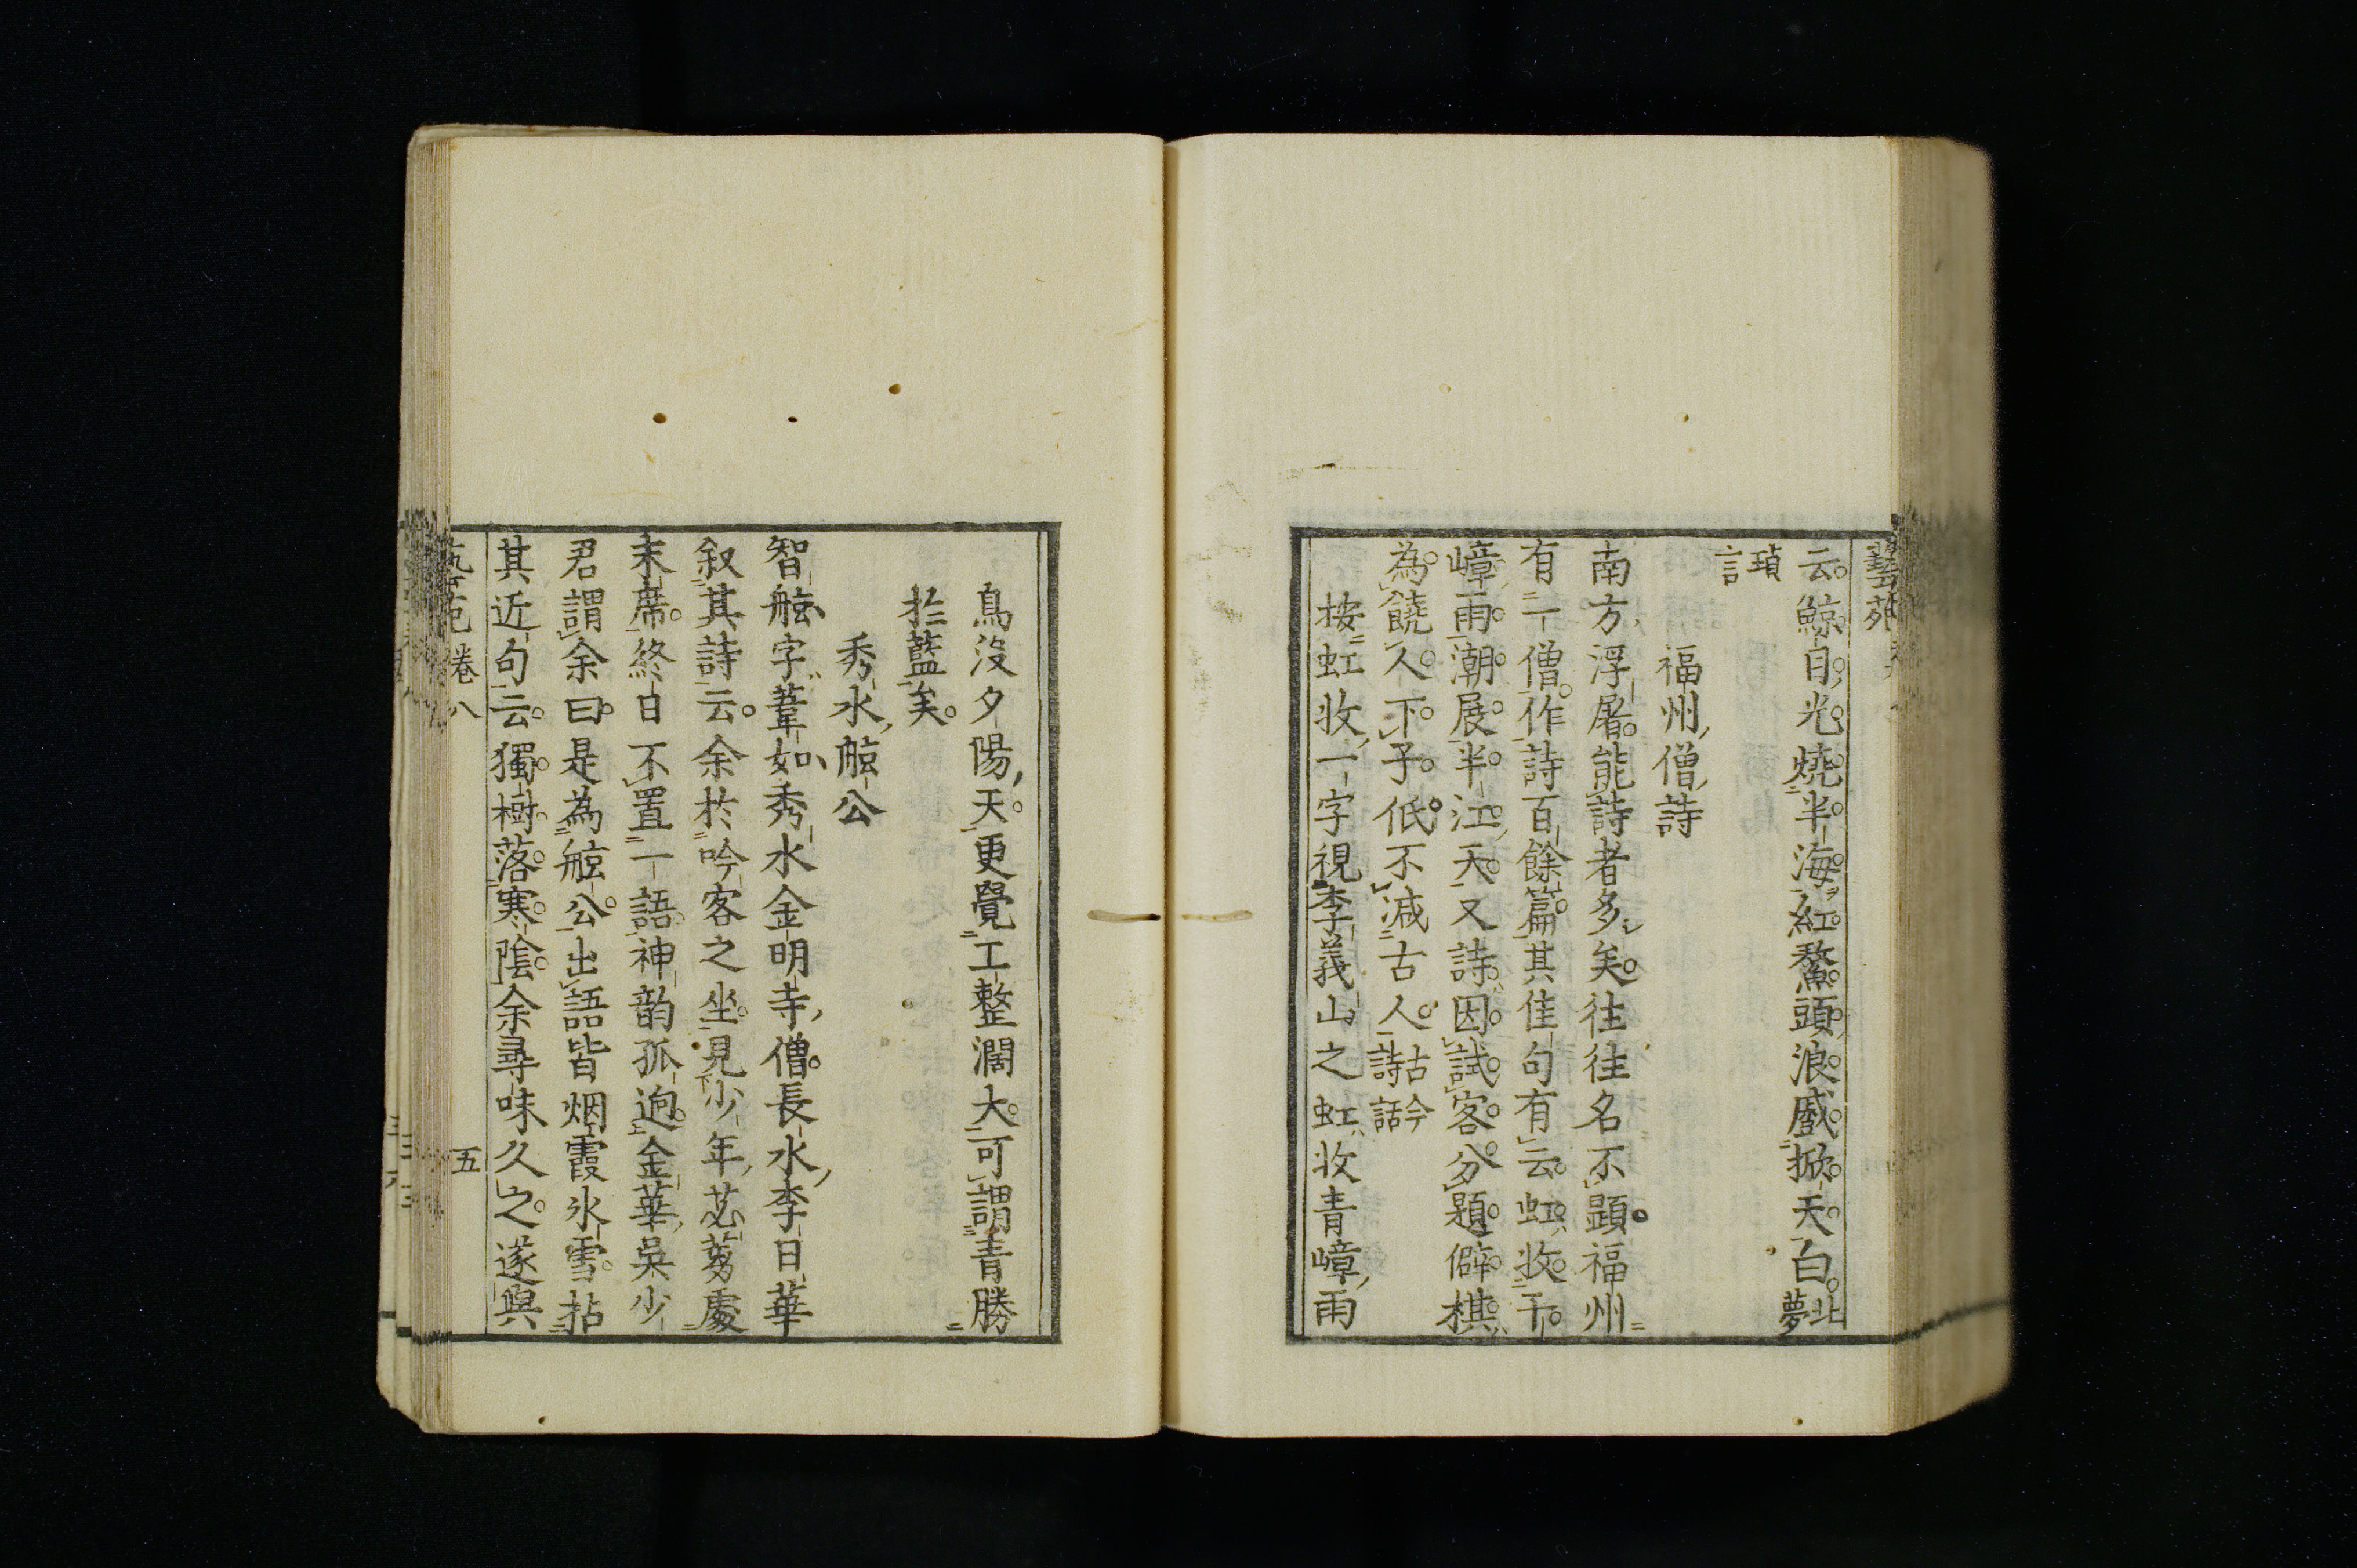 藝苑
云鯨目光燒半海紅鰲頭浪戲掀天白北夢
瑣言
福州僧詩
南方浮屠能詩者多矣往往名不顕福州
有一僧作詩百餘篇其佳句有云虹收千
嶂雨潮展半江天又詩因試客分題僻棋
為饒人下子低不減古人古今詩話
按虹收一字視李義山之虹收青嶂雨
鳥没夕陽天更覺工整濶大可謂青勝
於藍矣
秀水舷公
智舷字葦如秀水金明寺僧長水李日華
叙其詩云余於吟客之坐見少年苾蒭處
末席終日不置一語神韵孤逈金華吳少
君謂余曰是為舷公出語皆烟霞氷雪拈
其近句云獨樹落寒陰余尋味久之遂與
藝苑卷八 五